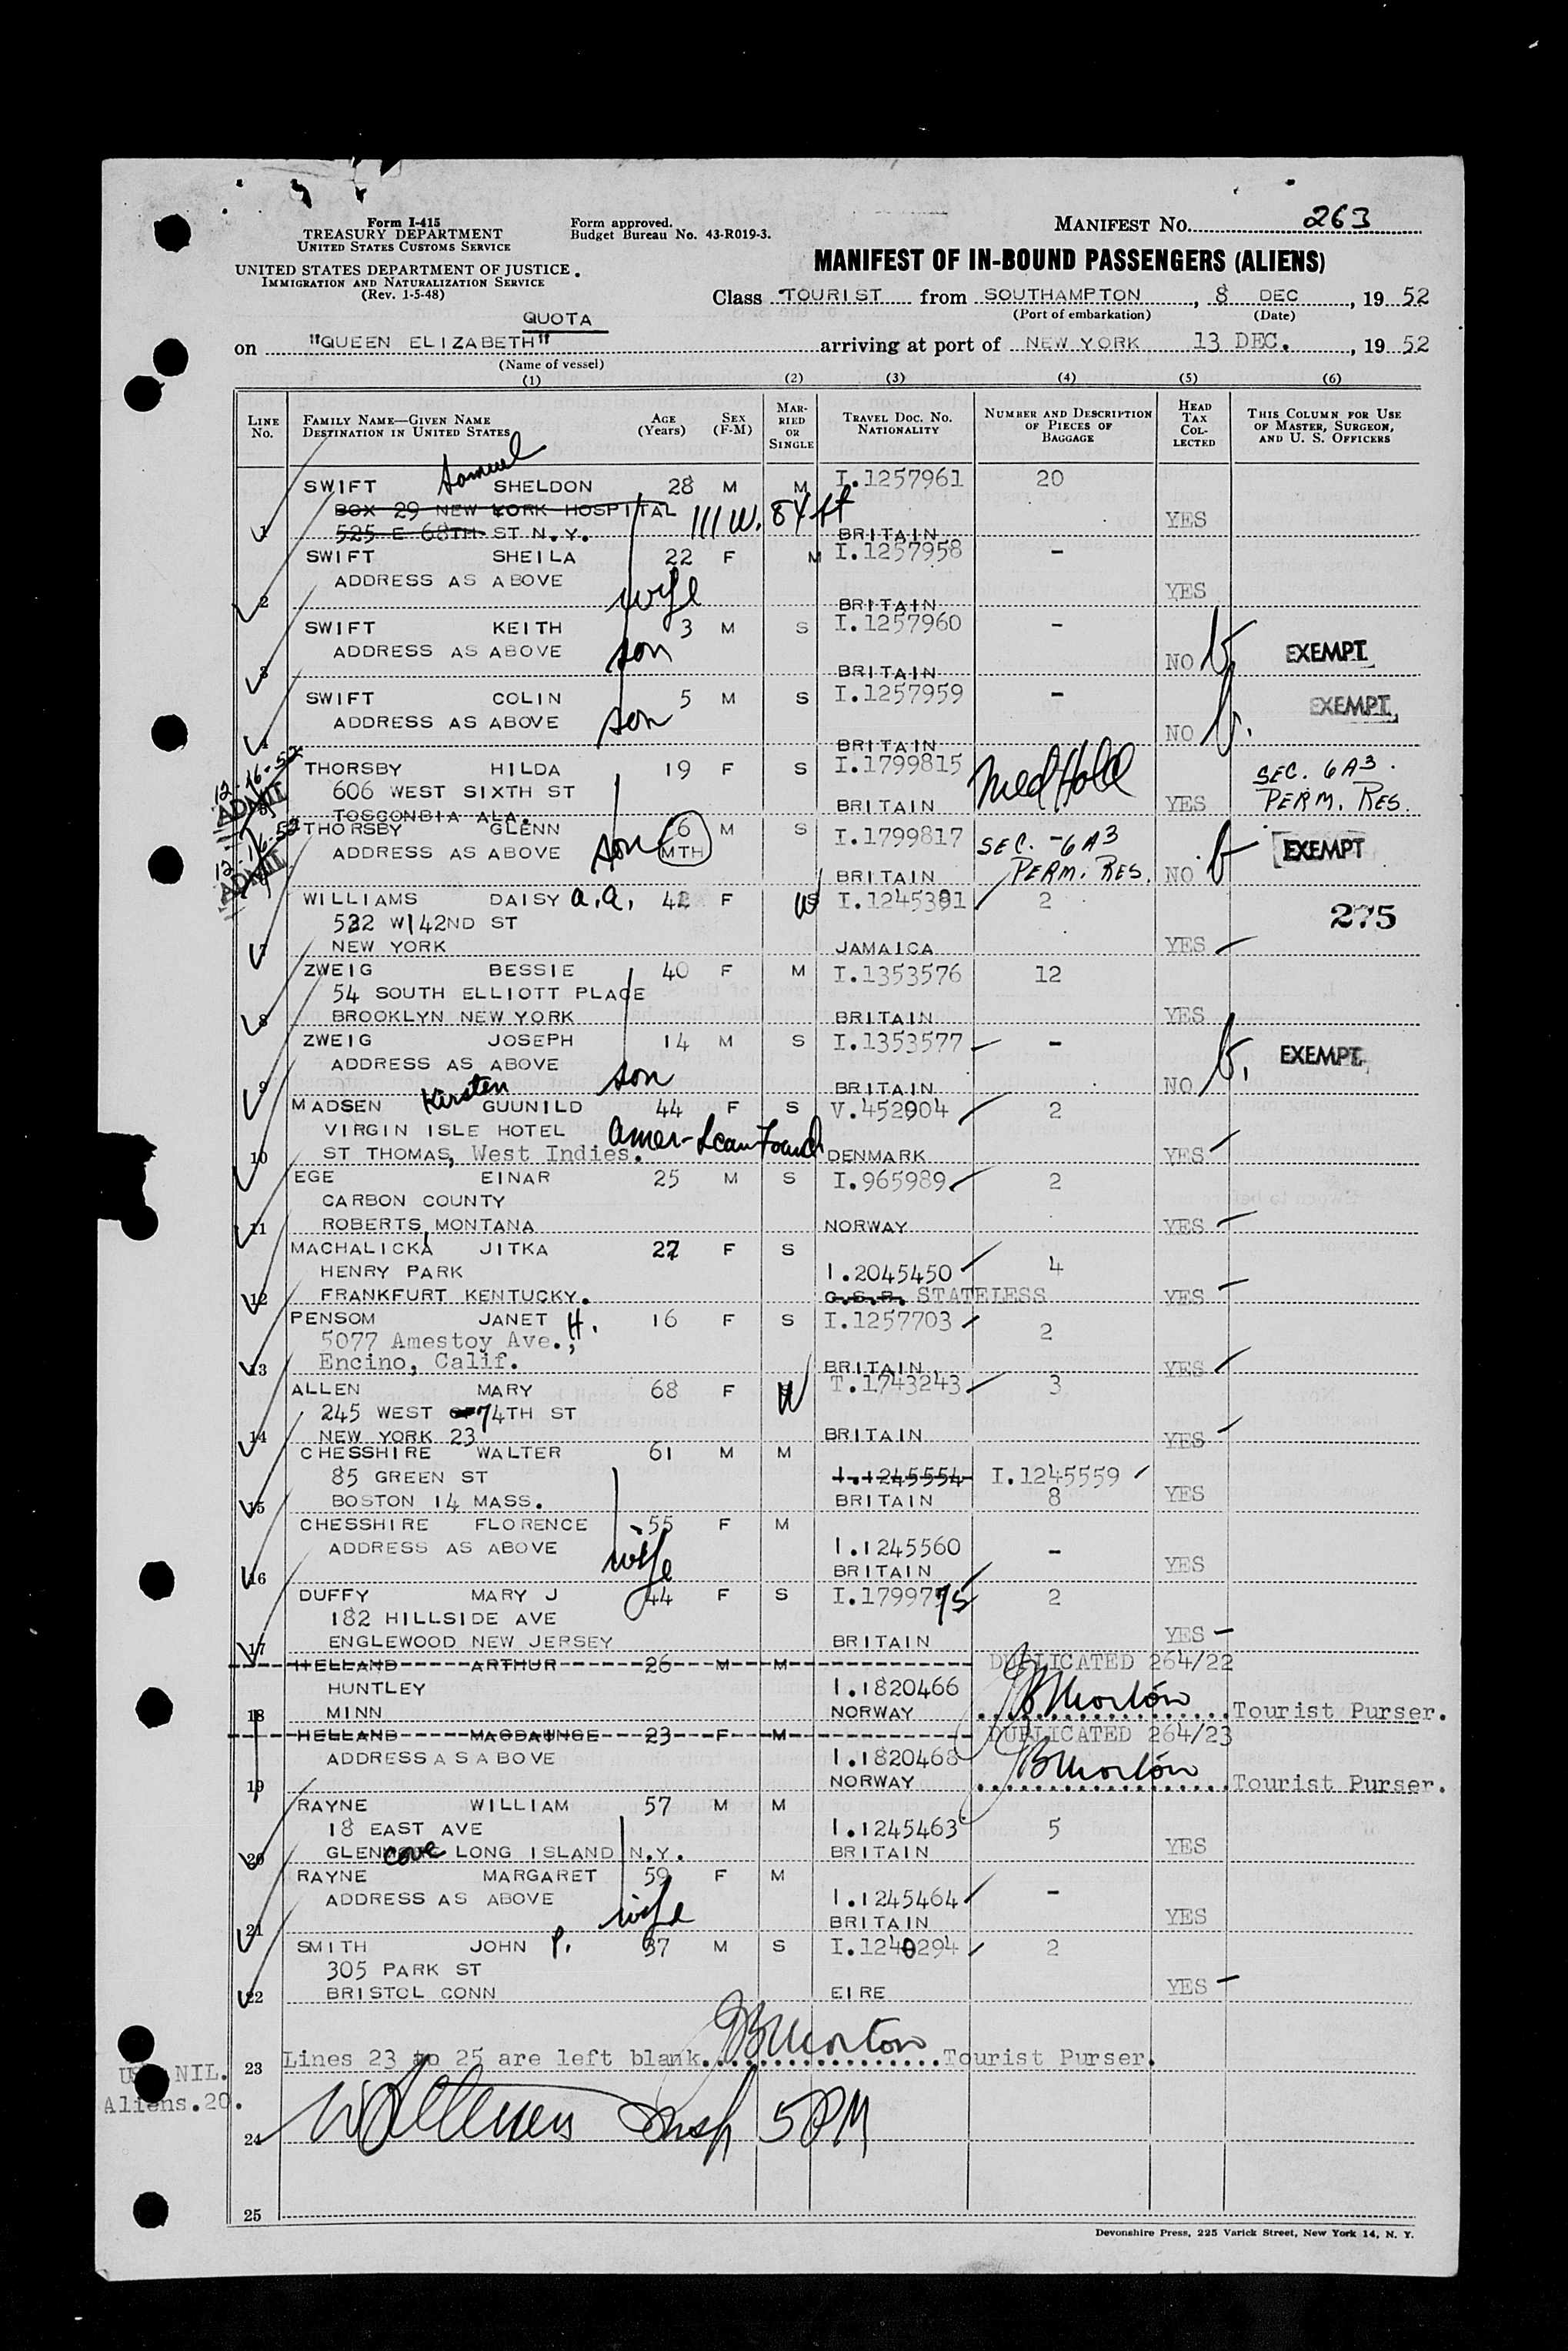 Form I-415
TREASURY DEPARTMENT
UNITED STATES CUSTOMS SERVICE
UNITED STATES DEPARTMENT OF JUSTICE
IMMIGRATION AND NATURALIZATION SERVICE
(Rev. 1-5-48)
Form approved.
Budget Bureau No. 43-R019-3.
MANIFEST NO. 263
MANIFEST OF IN-BOUND PASSENGERS (ALIENS)
Class TOURIST from SOUTHAMPTON, 8 DEC, 19 52
(Port of embarkation) (Date)
QUOTA
on "QUEEN ELIZABETH" arriving at port of NEW YORK 13 DEC., 19 52
(Name of vessel)
(1) (2) (3) (4) (5) (6)
LINE NO. FAMILY NAME—GIVEN NAME DESTINATION IN UNITED STATES AGE (YEARS) SEX (F-M) MARRIED OR SINGLE TRAVEL DOC. NO. NATIONALITY NUMBER AND DESCRIPTION OF PIECES OF BAGGAGE HEAD TAX COLLECTED THIS COLUMN FOR USE OF MASTER, SURGEON, AND U. S. OFFICERS
SWIFT Samuel SHELDON 28 M M I.1257961 20
BOX 29 NEW YORK HOSPITAL 111 W. 84 St YES
1 525 E 68TH ST N.Y. BRITAIN
SWIFT SHEILA 22 F M I.1257958 -
ADDRESS AS ABOVE wife YES
2 BRITAIN
SWIFT KEITH 3 M S I.1257960 -
ADDRESS AS ABOVE son NO EXEMPT
3 BRITAIN
SWIFT COLIN 5 M S I.1257959 -
ADDRESS AS ABOVE son NO EXEMPT
4 BRITAIN
12-16-52 ADMIT
THORSBY HILDA 19 F S I.1799815 Med Hold SEC. 6A3.
606 WEST SIXTH ST BRITAIN YES PERM. RES.
TOSCONBIA ALA.
12-16-52 ADMIT
THORSBY GLENN 6 MTH M S I.1799817 SEC.-6A3
ADDRESS AS ABOVE son PERM. RES. NO EXEMPT
BRITAIN
WILLIAMS DAISY a.a. 42 F W I.1245391 2 275
532 W142ND ST
7 NEW YORK JAMAICA YES
ZWEIG BESSIE 40 F M I.1353576 12
54 SOUTH ELLIOTT PLACE
8 BROOKLYN NEW YORK BRITAIN YES
ZWEIG JOSEPH 14 M S I.1353577 - EXEMPT
ADDRESS AS ABOVE son
9 BRITAIN NO
MADSEN Kirsten GUUNILD 44 F S V.452904 2
VIRGIN ISLE HOTEL Amer-Scan Found
10 ST THOMAS, West Indies. DENMARK YES
EGE EINAR 25 M S I.965989 2
CARBON COUNTY
11 ROBERTS, MONTANA NORWAY YES
MACHALICKA JITKA 27 F S
HENRY PARK I.2045450 4
12 FRANKFURT KENTUCKY. C.S.R. STATELESS YES
PENSOM JANET H. 16 F S I.1257703 2
5077 Amestoy Ave.,
13 Encino, Calif. BRITAIN YES
ALLEN MARY 68 F W T.1743243 3
245 WEST 74TH ST
14 NEW YORK 23 BRITAIN YES
CHESSHIRE WALTER 61 M M
85 GREEN ST I.1245554 I.1245559
15 BOSTON 14 MASS. BRITAIN 8 YES
CHESSHIRE FLORENCE 55 F M
ADDRESS AS ABOVE wife I.1245560 -
16 BRITAIN YES
DUFFY MARY J 44 F S I.1799775 2
182 HILLSIDE AVE
17 ENGLEWOOD NEW JERSEY BRITAIN YES
HELLAND ARTHUR 26 M M DUPLICATED 264/22
HUNTLEY I.1820466
18 MINN NORWAY JBMorton Tourist Purser.
HELLAND 23 F M DUPLICATED 264/23
ADDRESS AS ABOVE I.1820468
19 NORWAY JBMorton Tourist Purser.
RAYNE WILLIAM 57 M M
18 EAST AVE I.1245463 5
20 GLEN cove LONG ISLAND N.Y. BRITAIN YES
RAYNE MARGARET 59 F M
ADDRESS AS ABOVE wife I.1245464 -
21 BRITAIN YES
SMITH JOHN P. 37 M S I.1240294 2
305 PARK ST
22 BRISTOL CONN EIRE YES
23 Lines 23 to 25 are left blank. JBMorton Tourist Purser.
NIL.
Aliens.20.
24 Insp 5 PM
25
Devonshire Press, 225 Varick Street, New York 14, N. Y.